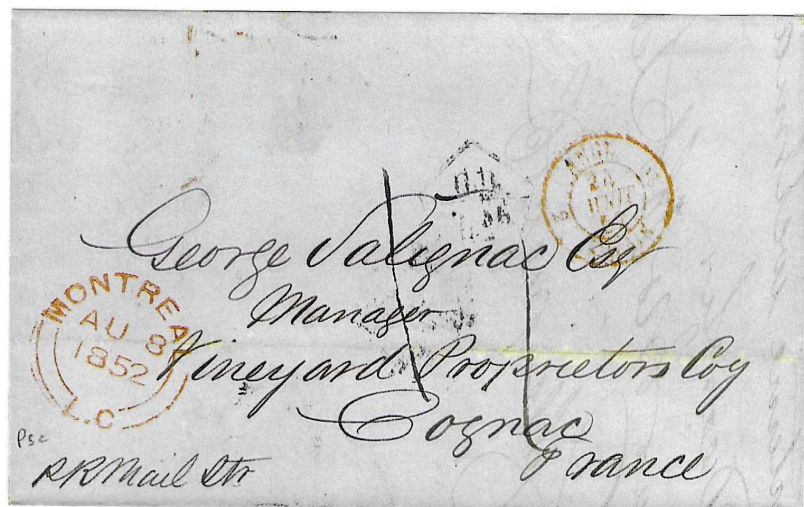 George Salignac Esq
Manager
Vineyard Proprietors Coy
Cognac
France
MONTREAL
AU 8
1852
L.C
PR Mail Str